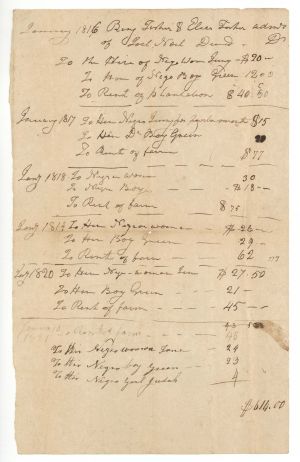 January 1816 Benj Fisher & Elias Fisher admrs
of Joel Noel Decd - Dr
To the Hire of Negro Wom Juny - $20 -
To Hire of Negro Boy Green 12 00
To Rent of Plantation $40.50
January 1817 To Hire Negro Juny $15
To Hire Do Boy Green 20
To Rent of farm $77
Jany 1818 To Negro woman 30
To Negro Boy - $18 -
To Rent of farm - - $75
Jany 1819 To Hire Negro woman - $26 -
To Hire Boy Green - - 29 -
To Rent of farm - - - 62
Jany 1820 To Hire Negro woman $27.50
To Hire Boy Green - - 21 -
To Rent of farm - - 45 - -
To Hire Negro woman 24
To Hire Negro boy Green - - 23
To Hire Negro Girl Judah 4
$614.00